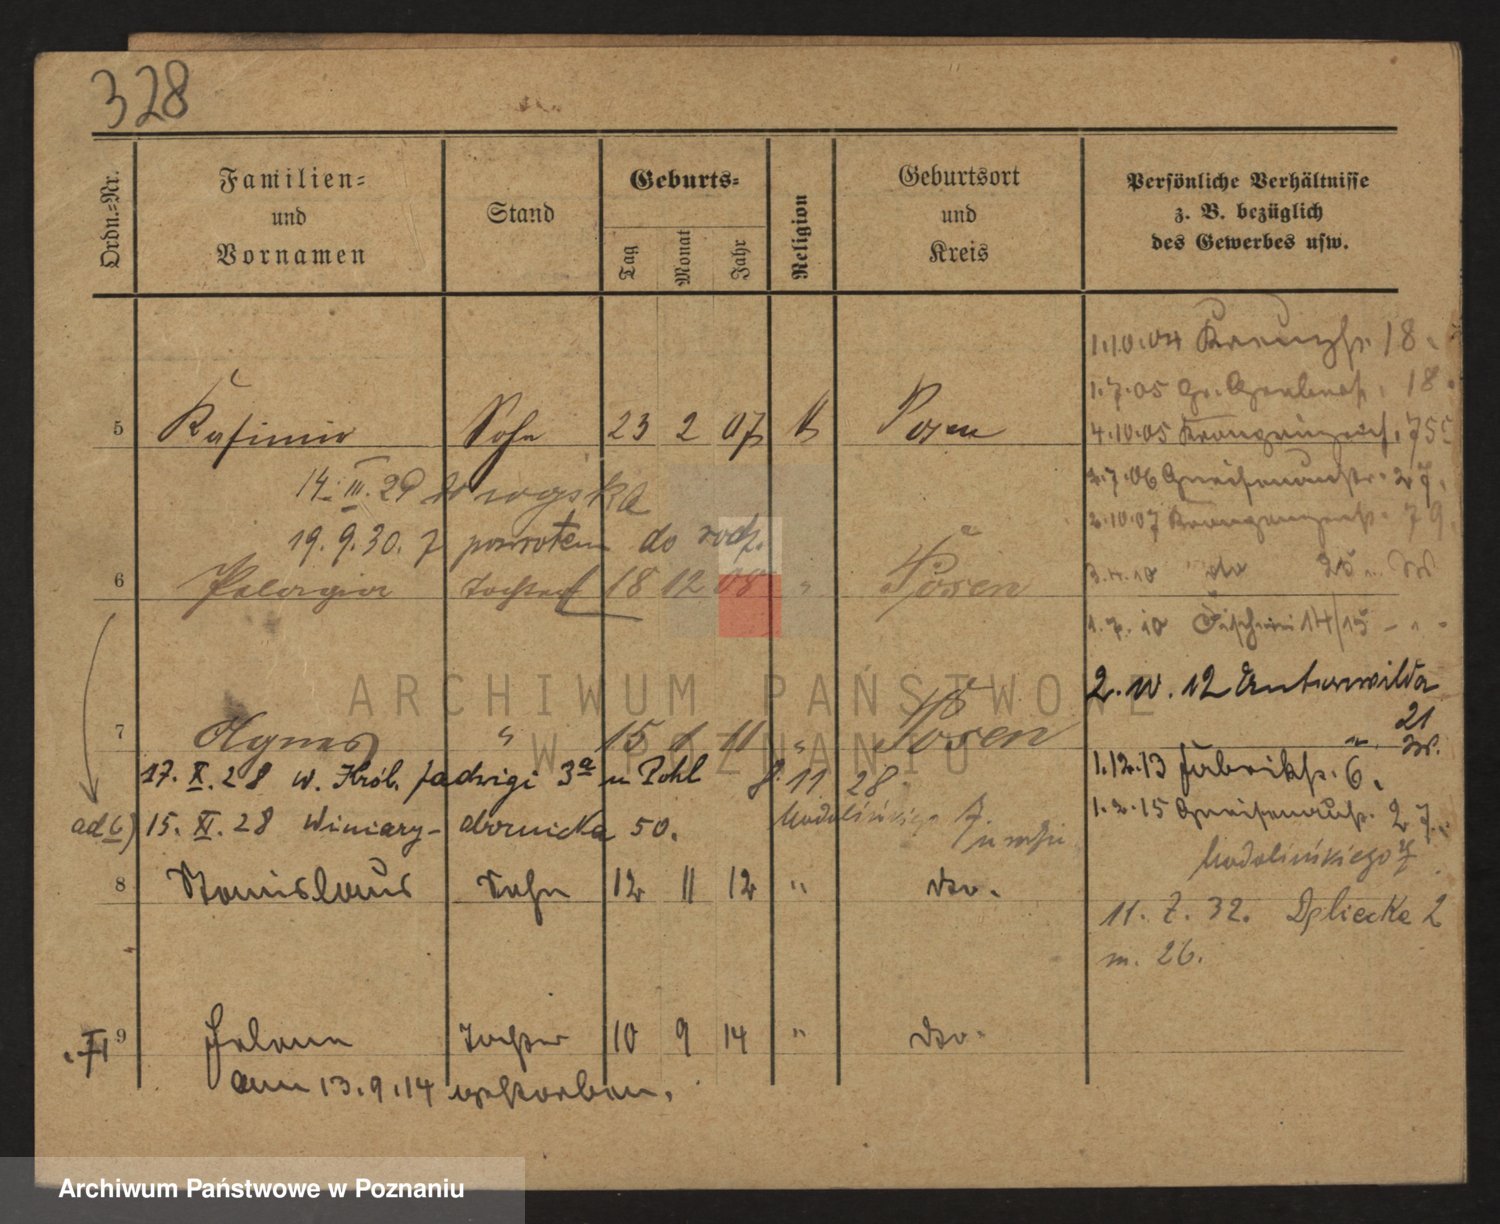 328
Ordn.-Nr.
Familien-
und
Vornamen
Stand
Geburts-
Tag
Monat
Jahr
Religion
Geburtsort
und
Kreis
Persönliche Verhältnisse
z. B. bezüglich
des Gewerbes usw.
1.10.04 Kreuzstr. 18.
1.7.05 Gr. Gerberstr. 18.
4.10.05 Kronprinzenstr.
5 Kasimir Sohn 23 2 07 Posen
2.7.06 Gneisenaustr. 27.
14. III. 29
2.10.07 Kronprinzenstr. 79.
19. 9. 30. z powrotem do rodz.
6 Pelagia Tochter 18 12 08 " Posen
3.4.10 do 25
1.7.10 Fischerei 14/15 - " -
2. IV. 12 Unterwilda
21
7 Agnes " 15 1 11 " Posen
1.12.13 Fabrikstr. 6.
17. X. 28 w. Król. Jadwigi 3a u Pohl 8. 11. 28
1.2.15 Gneisenaustr. 27.
ad 6) 15. XI. 28 Winiary- obornicka 50.
Madalińskiego 7
Madalińskiego 7
8 Stanislaus Sohn 12 11 12 " do.
11. 7. 32.
m. 26.
9 Helene Tochter 10 9 14 " do.
am 13.9.14 gestorben.
ARCHIWUM PAŃSTWOWE
W POZNANIU
Archiwum Państwowe w Poznaniu